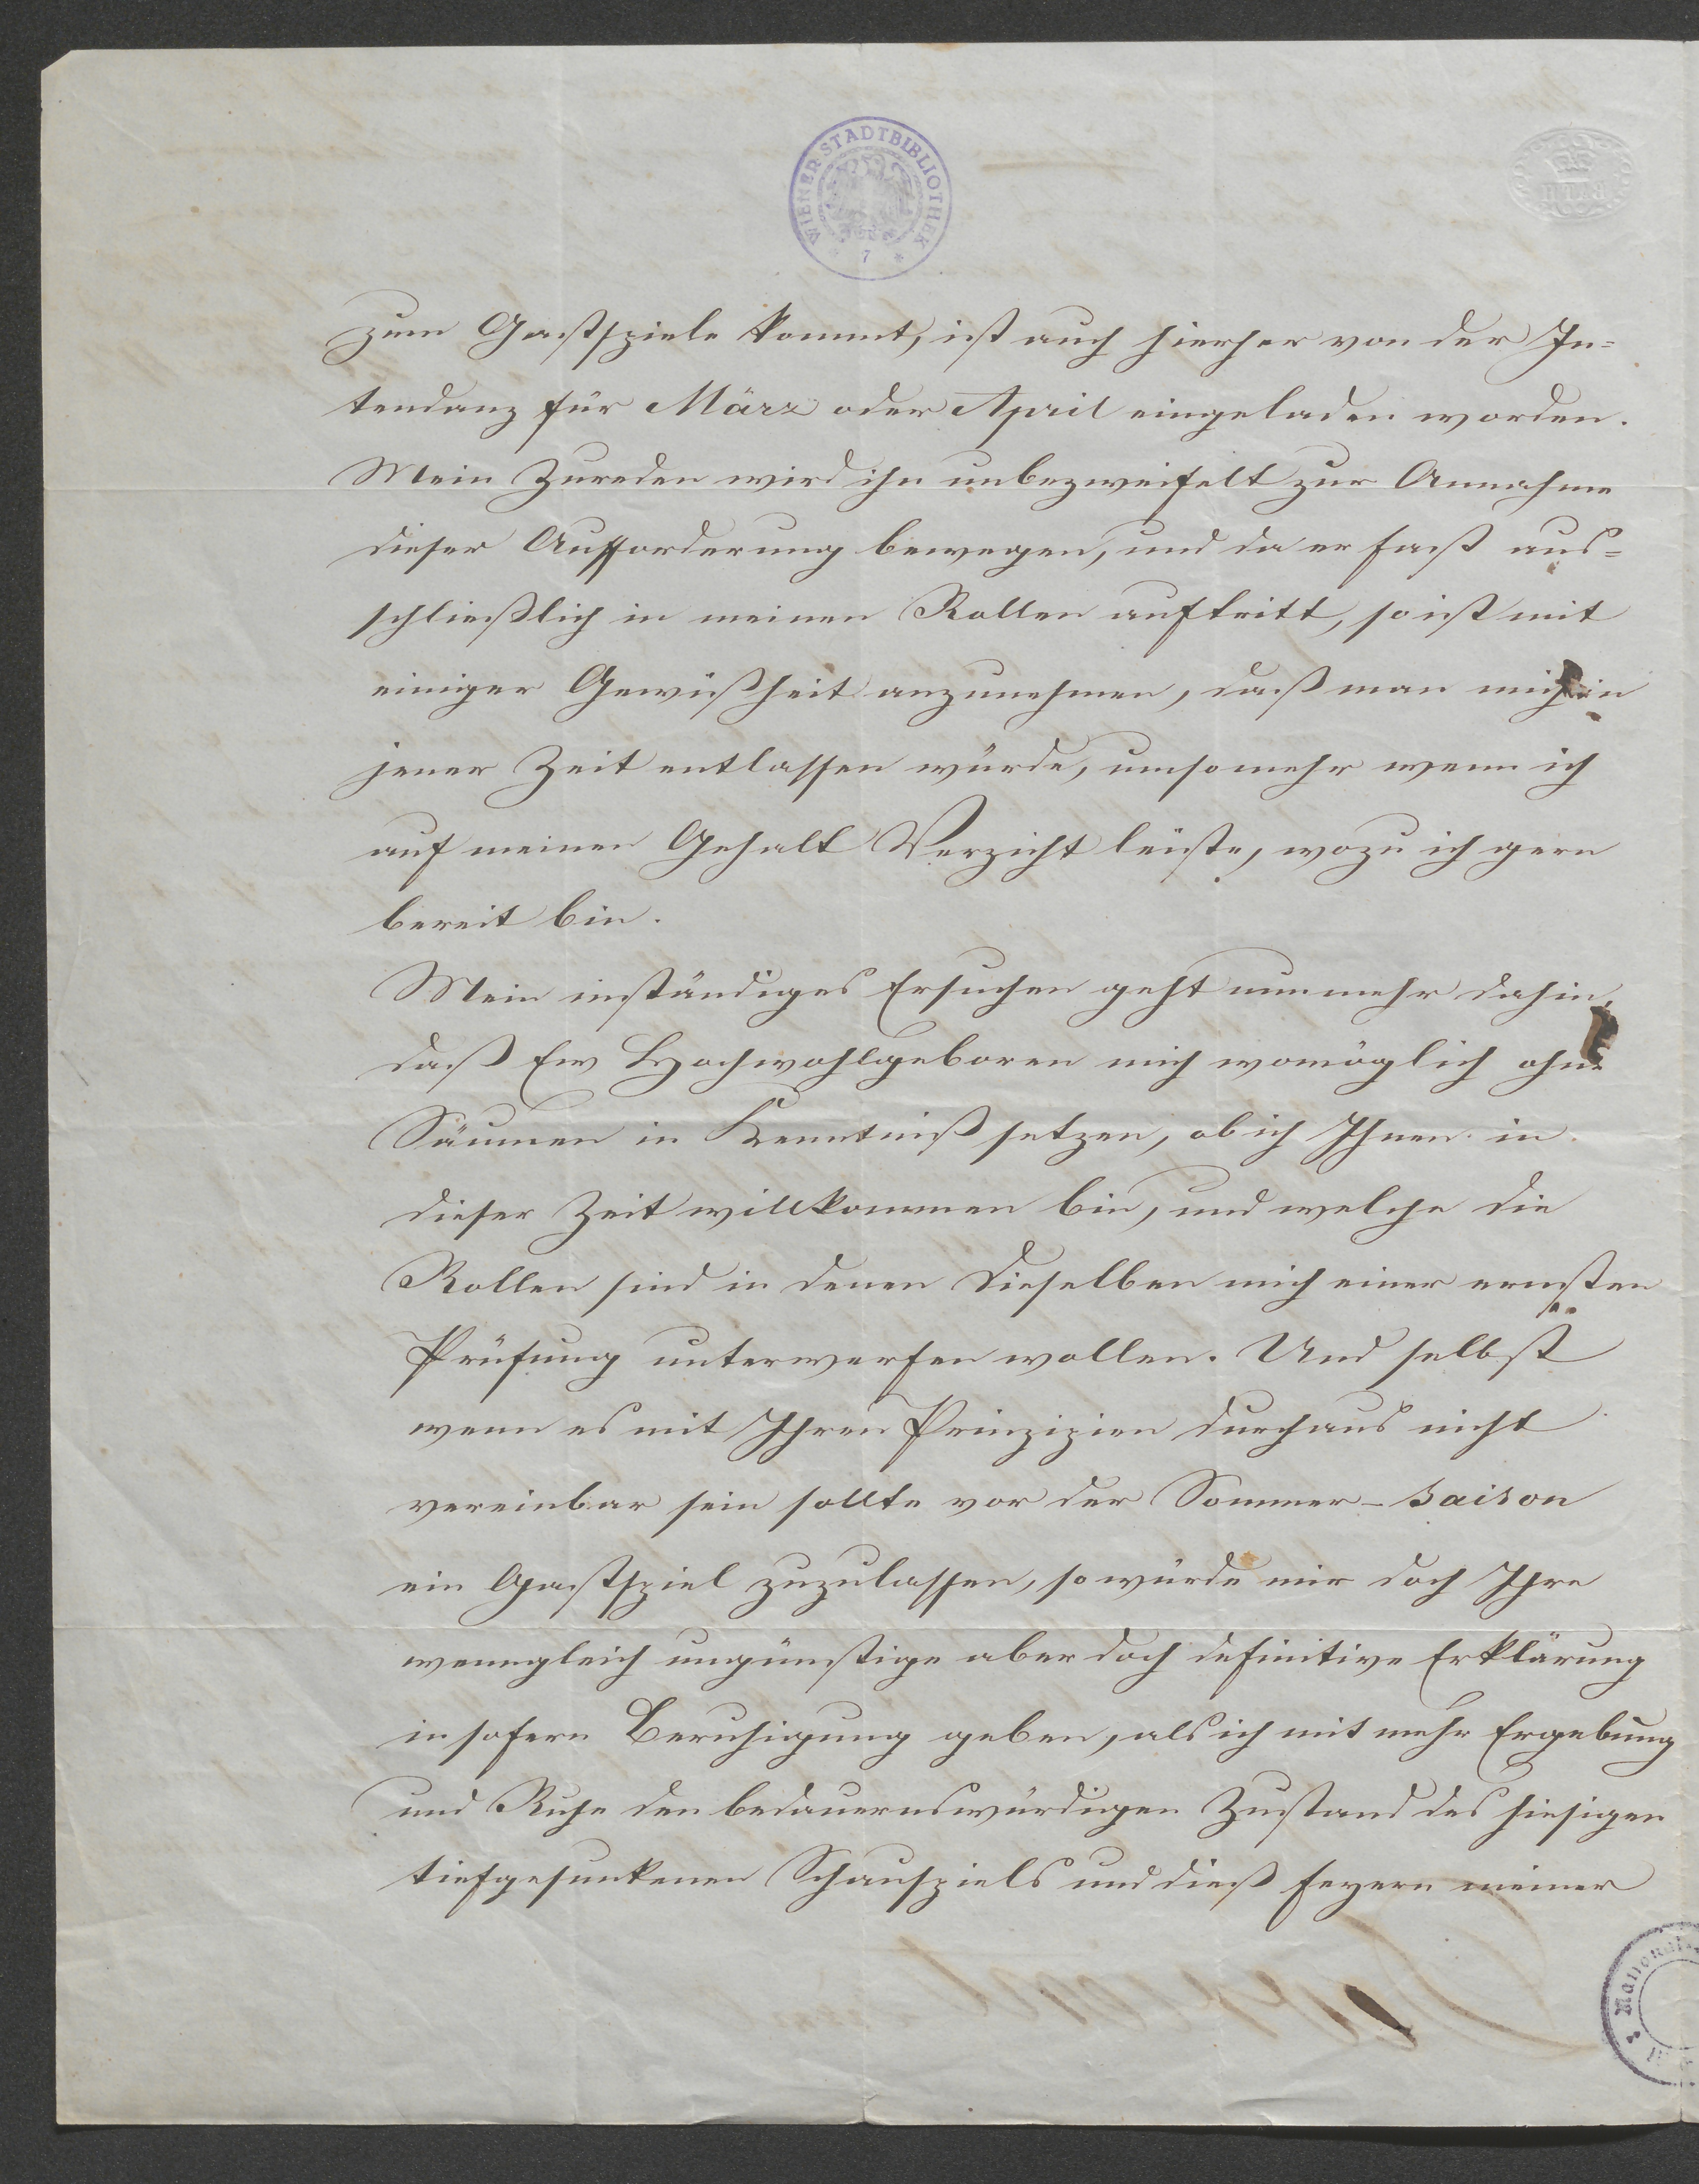 WIENER STADTBIBLIOTHEK
7
zum Gastspiele kommt, ist auch hierher von der In-
tendanz für März oder April eingeladen worden.
Mein Zureden wird ihn unbezweifelt zur Annahme
dieser Aufforderung bewegen, und da er fast aus-
schließlich in meinen Rollen auftritt, so ist mit
einiger Gewißheit anzunehmen, daß man mich in
jener Zeit entlassen würde, umsomehr wenn ich
auf meinen Gehalt Verzicht leiste, wozu ich gern
bereit bin.
Mein inständiges Ersuchen geht nunmehr dahin,
daß Ew Hochwohlgeboren mich womöglich ohne
Säumen in Kenntniß setzen, ob ich Ihnen in
dieser Zeit willkommen bin, und welche die
Rollen sind in denen Dieselben mich einer ernsten
Prüfung unterwerfen wollen. Und selbst
wenn es mit Ihren Prinzipien durchaus nicht
vereinbar sein sollte vor der Sommer-Saison
ein Gastspiel zuzulassen, so würde mir doch Ihre
wenngleich ungünstige aber doch definitive Erklärung
insofern Beruhigung geben, als ich mit mehr Ergebung
und Ruhe den bedauernswürdigen Zustand des hiesigen
tiefgesunkenen Schauspiels und dieß Feyern meiner